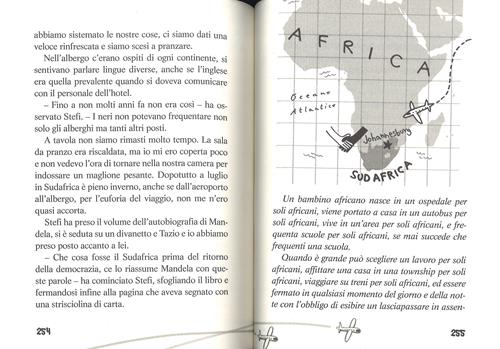 abbiamo sistemato le nostre cose, ci siamo dati una
veloce rinfrescata e siamo scesi a pranzare.
Nell'albergo c'erano ospiti di ogni continente, si
sentivano parlare lingue diverse, anche se l'inglese
era quella prevalente quando si doveva comunicare
con il personale dell'hotel.
– Fino a non molti anni fa non era così – ha os-
servato Stefi. – I neri non potevano frequentare non
solo gli alberghi ma tanti altri posti.
A tavola non siamo rimasti molto tempo. La sala
da pranzo era riscaldata, ma io mi ero coperta poco
e non vedevo l'ora di tornare nella nostra camera per
indossare un maglione pesante. Dopotutto a luglio
in Sudafrica è pieno inverno, anche se dall'aeroporto
all'albergo, per l'euforia del viaggio, non me n'ero
quasi accorta.
Stefi ha preso il volume dell'autobiografia di Man-
dela, si è seduta su un divanetto e Tazio e io abbiamo
preso posto accanto a lei.
– Che cosa fosse il Sudafrica prima del ritorno
della democrazia, ce lo riassume Mandela con que-
ste parole – ha cominciato Stefi, sfogliando il libro e
fermandosi infine alla pagina che aveva segnato con
una strisciolina di carta.
254
AFRICA
Oceano
Atlantico
Johannesburg
SUDAFRICA
Un bambino africano nasce in un ospedale per
soli africani, viene portato a casa in un autobus per
soli africani, vive in un'area per soli africani, e fre-
quenta scuole per soli africani, se mai succede che
frequenti una scuola.
Quando è grande può scegliere un lavoro per soli
africani, affittare una casa in una township per soli
africani, viaggiare su treni per soli africani, ed essere
fermato in qualsiasi momento del giorno e della not-
te con l'obbligo di esibire un lasciapassare in assen-
255